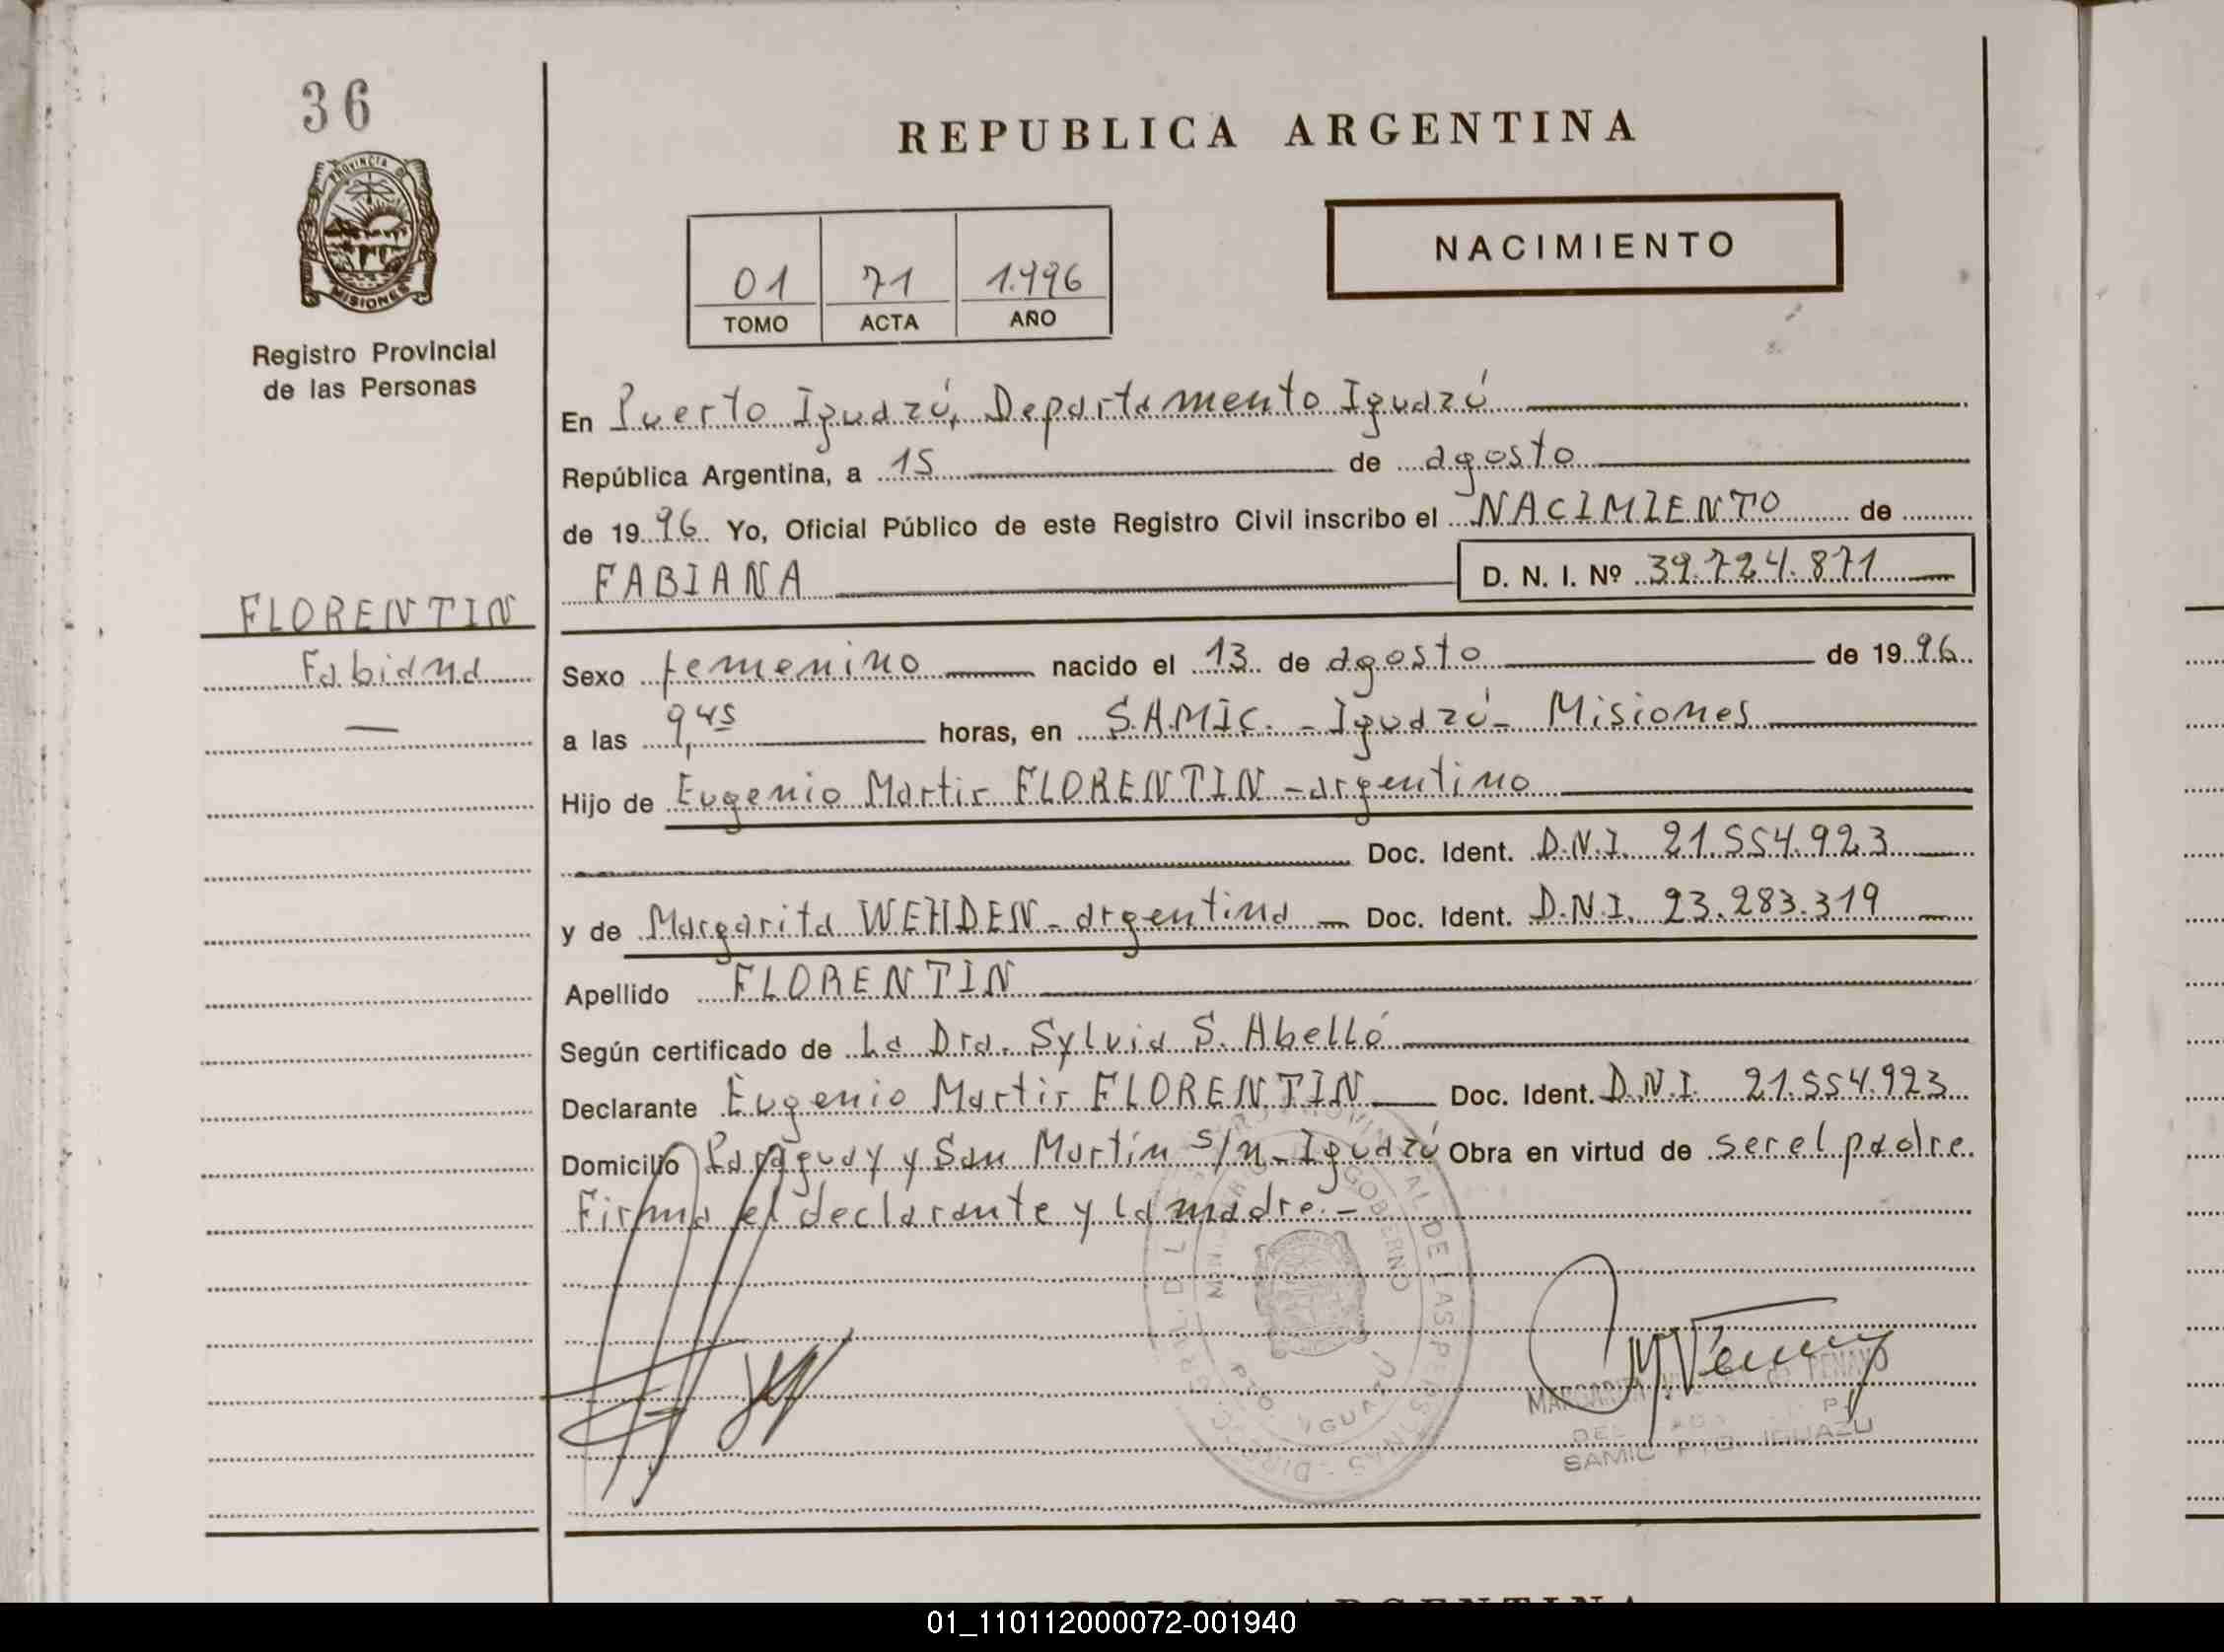 36
PROVINCIA DE
MISIONES
Registro Provincial
de las Personas
FLORENTIN
Fabiana
REPUBLICA ARGENTINA
NACIMIENTO
01 71 1.996
TOMO ACTA AÑO
En Puerto Iguazú, Departamento Iguazú
República Argentina, a 15 de agosto
de 19 96 Yo, Oficial Público de este Registro Civil inscribo el NACIMIENTO de
FABIANA D. N. I. Nº 39.724.871
Sexo femenino nacido el 13 de agosto de 19 96
a las 9,45 horas, en S.A.M.I.C. - Iguazú - Misiones
Hijo de Eugenio Martir FLORENTIN - argentino
Doc. Ident. D.N.I. 21.554.923
y de Margarita WEHDEN - argentina - Doc. Ident. D.N.I. 23.283.319
Apellido FLORENTIN
Según certificado de La Dra. Sylvia S. Abelló
Declarante Eugenio Martir FLORENTIN Doc. Ident. D.N.I. 21.554.923
Domicilio Paraguay y San Martín s/n - Iguazú Obra en virtud de ser el padre.
Firma el declarante y la madre. -
PROVINCIAL DE LAS PERSONAS - DIRECC. GRAL. DEL
GOBERNO
PTO. IGUAZU
MARGARITA
SAMIC PTO. IGUAZU
01_110112000072-001940